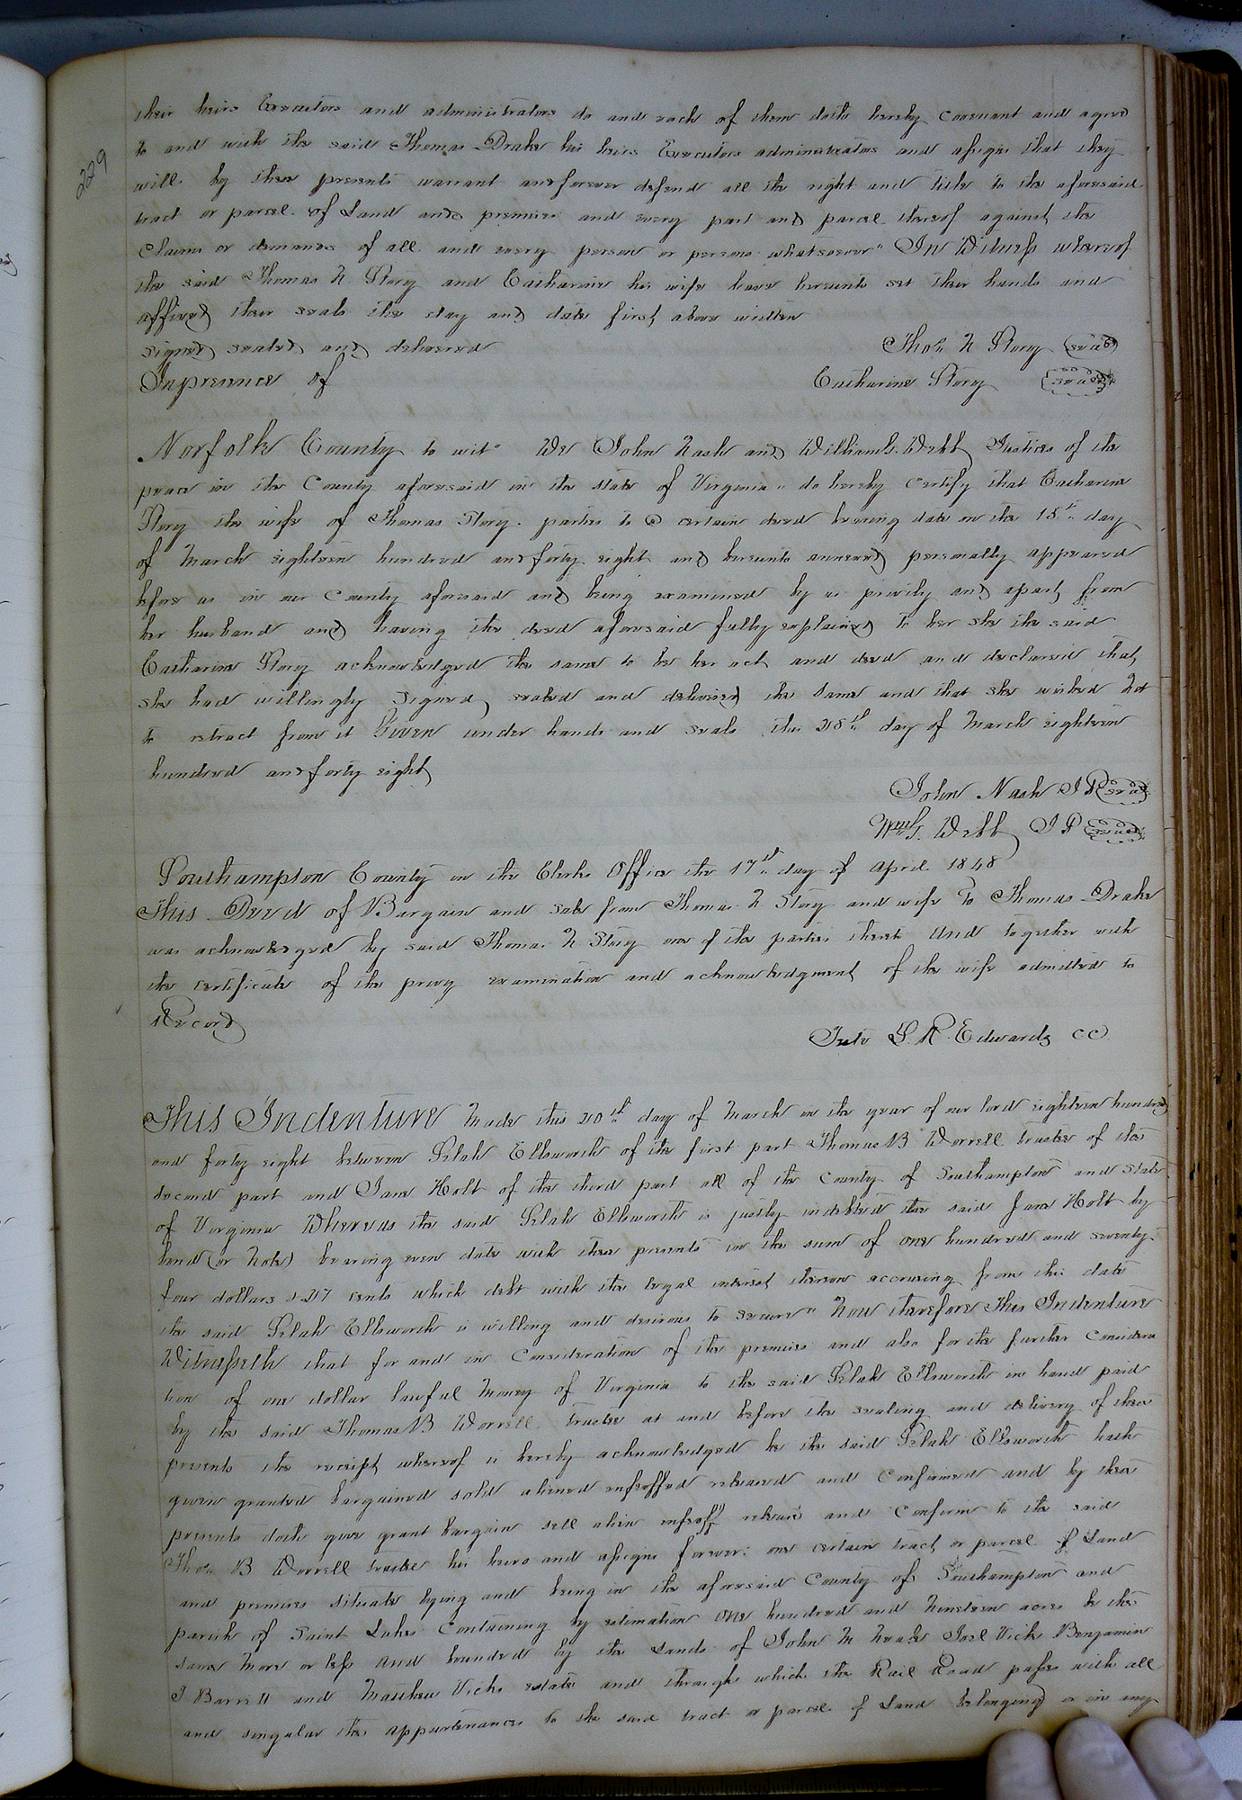 229
their heirs Executors and administrators do and each of them doth hereby covenant and agree
to and with the said Thomas Drake his heirs Executors administrators and assigns that they
will by these presents warrant and forever defend all the right and title to the aforesaid
tract or parcel of Land and premises and every part and parcel thereof against the
Claims or demands of all and every person or persons whatsoever" In Witness whereof
the said Thomas N Story and Catharine his wife have hereunto set their hands and
affixed their seals the day and date first above written
signed sealed and delivered Thos. N Story (seal)
In presence of Catharine Story (seal)
Norfolk County to wit" We John Nash and William G. Webb Justices of the
peace in the County aforesaid in the state of Virginia" do hereby certify that Catharine
Story the wife of Thomas Story parties to a certain deed bearing date on the 18th day
of March eighteen hundred and forty eight and hereunto annexed personally appeared
before us in our County aforesaid and being examined by us privily and apart from
her husband and having the deed aforesaid fully explained to her she the said
Catharine Story acknowledged the same to be her act and deed and declared that
she had willingly signed, sealed and delivered the same and that she wished not
to retract from it Given under hands and seals this 28th day of March eighteen
hundred and forty eight
John Nash J P (seal)
Wm G. Webb J P (seal)
Southampton County in the Clerks Office the 17th day of April 1848
This Deed of Bargain and sale from Thomas N Story and wife To Thomas Drake
was acknowledged by said Thomas N Story one of the parties thereto And together with
the certificate of the privy examination and acknowledgment of the wife admitted to
Record
Teste L. R. Edwards CC
This Indenture Made this 20th day of March in the year of our lord eighteen hundred
and forty eight between Selah Ellsworth of the first part Thomas B Worrell trustee of the
second part and Jane Holt of the third part all of the County of Southampton and State
of Virginia Whereas the said Selah Ellsworth is justly indebted the said Jane Holt by
bond (or Note) bearing even date with these presents in the sum of one hundred and seventy
four dollars & 27 cents which debt with the legal interest thereon accruing from this date
the said Selah Ellsworth is willing and desirous to secure" Now therefore This Indenture
Witnesseth that for and in Consideration of the premises and also for the further Considera
tion of one dollar lawful Money of Virginia to the said Selah Ellsworth in hand paid
by the said Thomas B Worrell trustee at and before the sealing and delivery of these
presents the receipt whereof is hereby acknowledged he the said Selah Ellsworth hath
given granted bargained sold aliened enfeoffed released and Confirmed and by these
presents doth give grant bargain sell alien enfeoff release and Confirm to the said
Thos. B Worrell trustee his heirs and assigns forever: one certain tract or parcel of Land
and premises situate lying and being in the aforesaid County of Southampton and
parish of Saint Lukes Containing by estimation one hundred and Nineteen acres be the
same More or less And bounded by the Lands of John M Joel Vick Benjamin
J Barrett and Matthew Vicks estate and through which the Rail Road passes with all
and singular the appurtenances to the said tract or parcel of Land belonging or in any